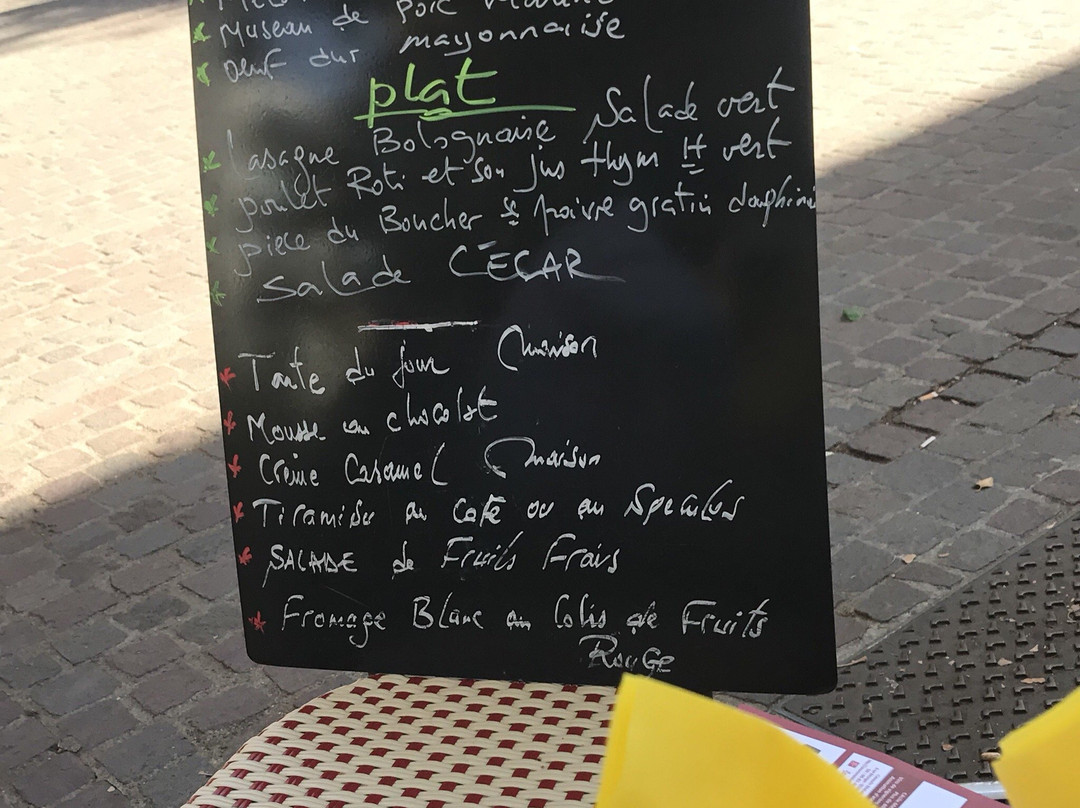 Museau de porc
Oeuf dur mayonnaise
plat
Lasagne Bolognaise Salade vert
poulet Roti et son jus thym H vert
piece du Boucher poivre gratin dauphini
Salade CÉCAR
Tarte du jour Maison
Mousse au chocolat
Crème Caramel Maison
Tiramisu au Café ou au Speculos
SALADE de Fruits Frais
Fromage Blanc au Colis de Fruits
RouGe